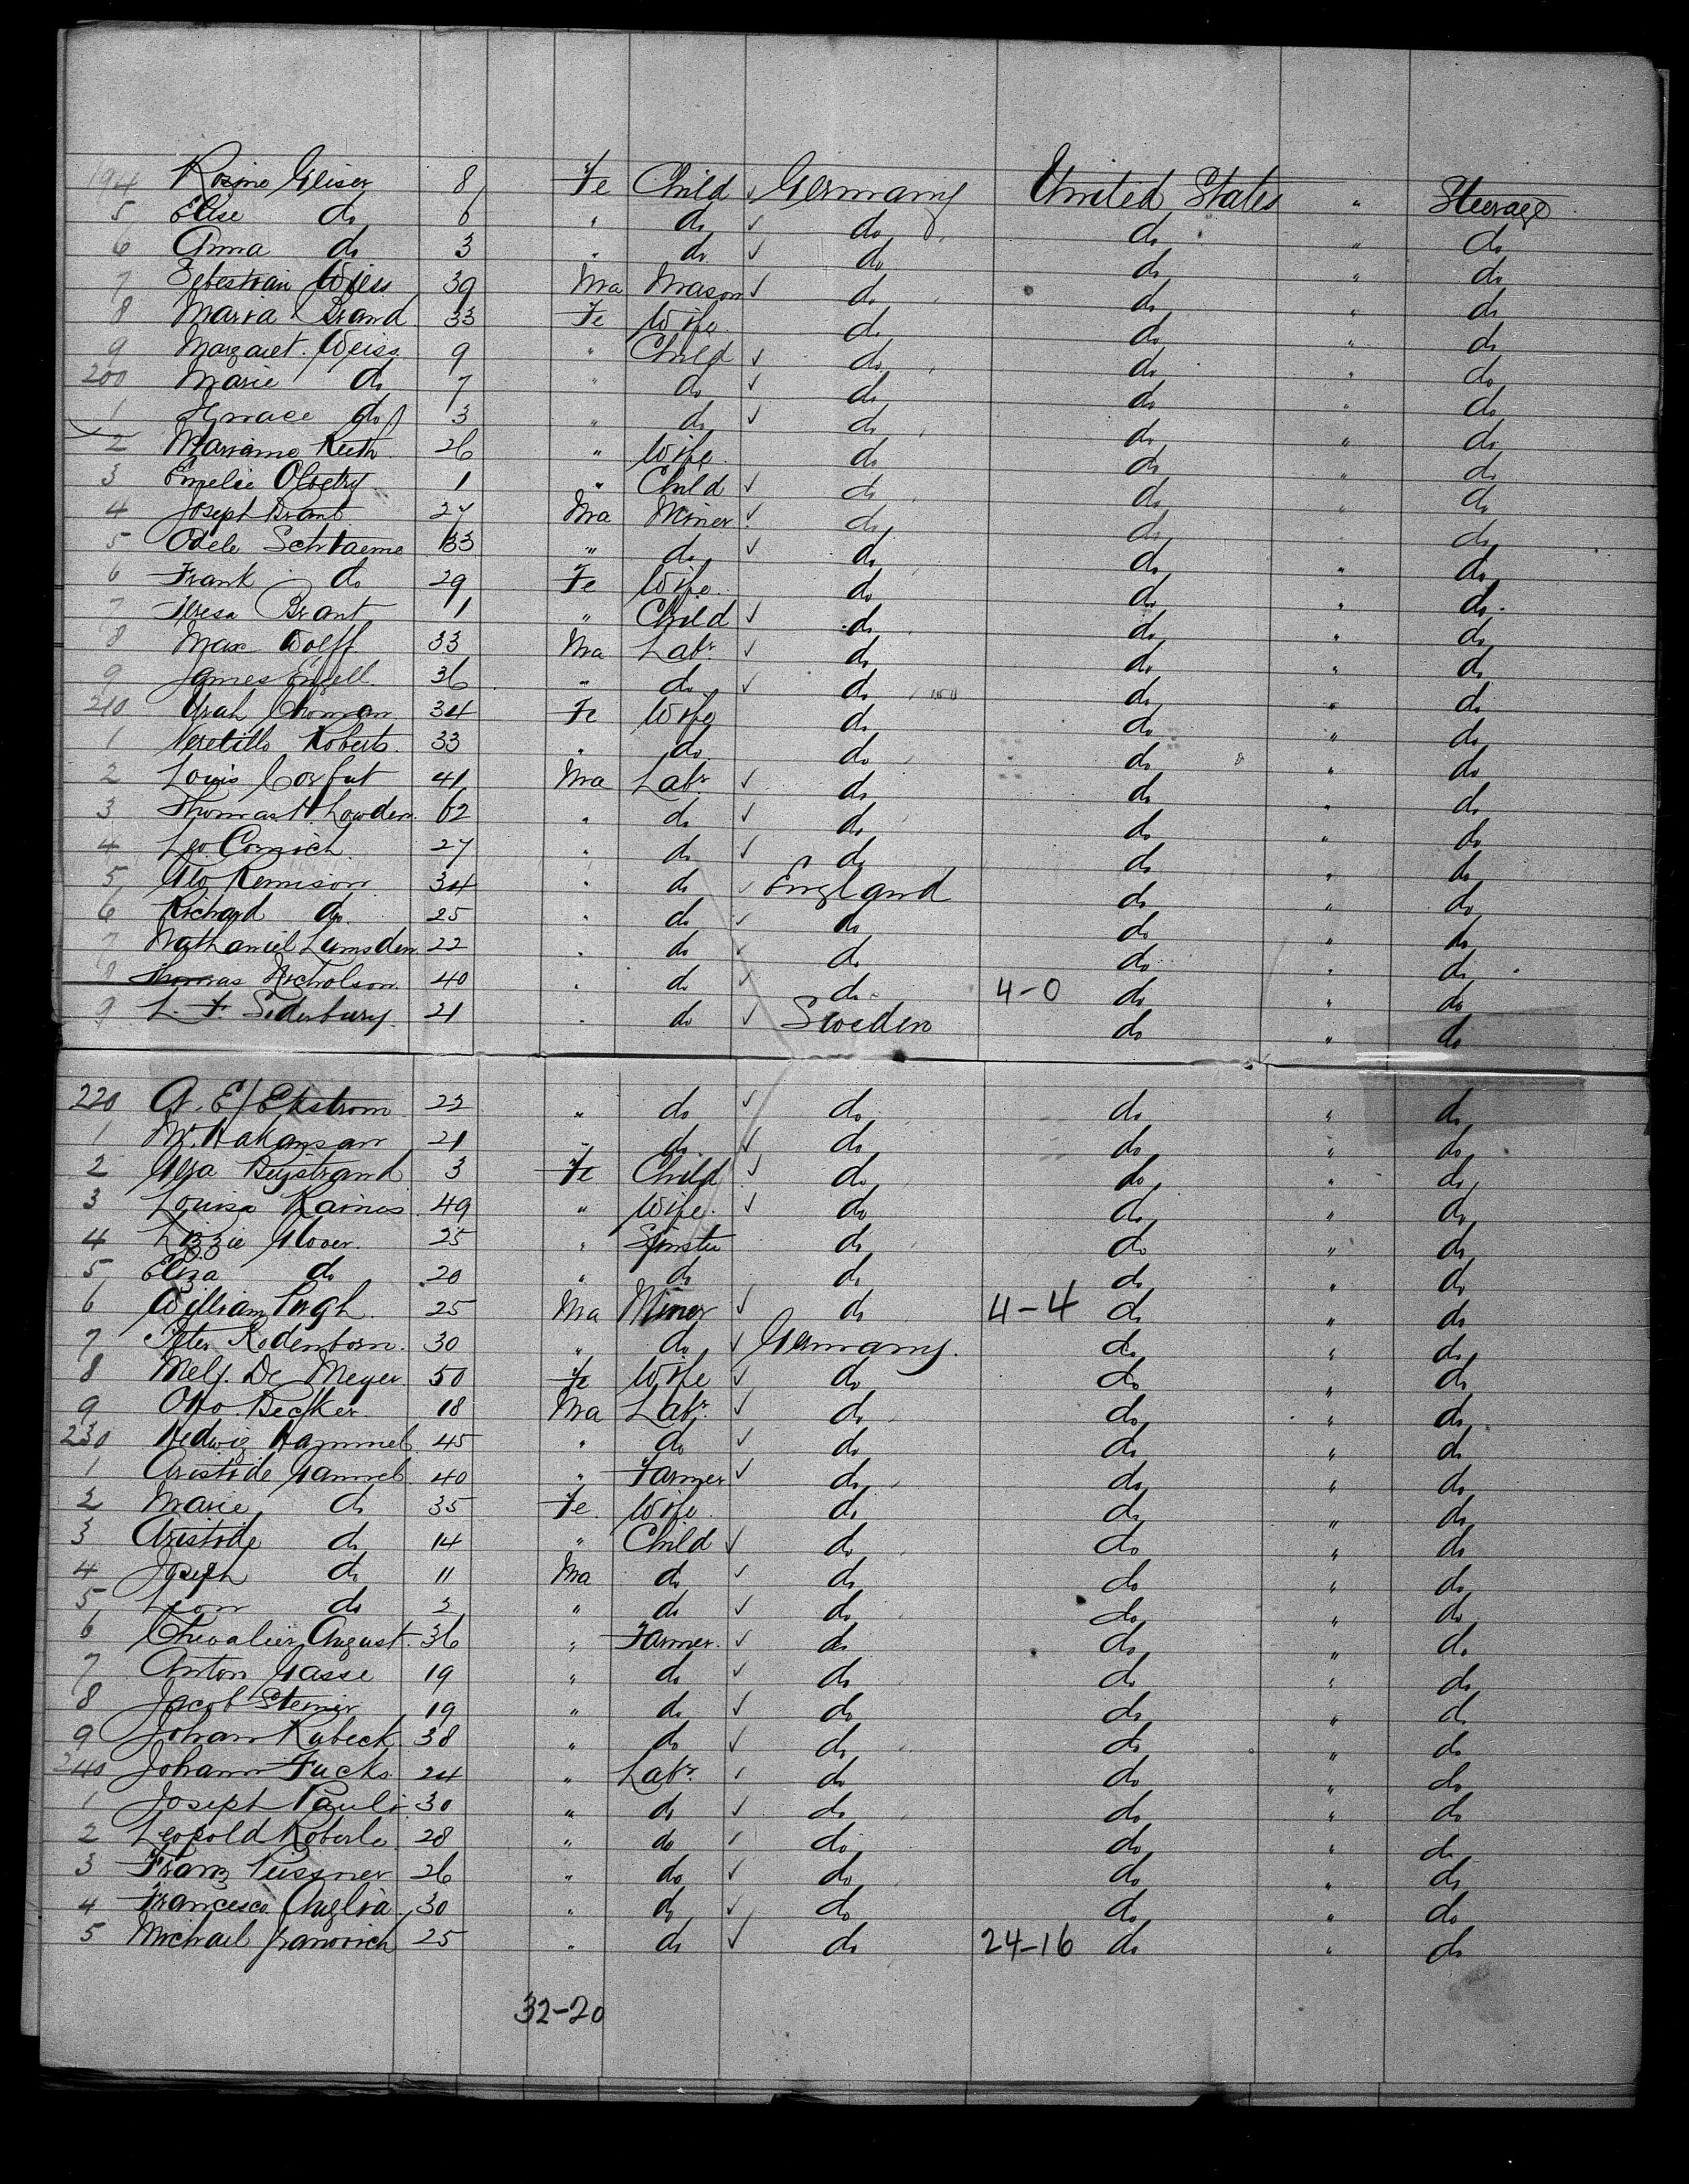 194 Rosine Gleiser 8 Fe Child ✓ Germany United States " Steerage
5 Elise do 6 " do ✓ do do " do
6 Anna do 3 " do ✓ do do " do
7 Sebestrain Weiss 39 Ma Mason ✓ do do " do
8 Maria Brand 33 Fe Wife do do " do
9 Margaret Weiss 9 " Child ✓ do do " do
200 Marie do 7 " do ✓ do do " do
1 do 3 " do ✓ do do " do
2 Marianne Keith 26 " Wife do do " do
3 Emelie 1 " Child ✓ do do " do
4 Joseph Brant 27 Ma Miner ✓ do do " do
5 Odele Schraeme 33 " do ✓ do do " do
6 Frank do 29 Fe Wife do do " do
7 Teresa Brant 1 " Child ✓ do do " do
8 Max Wolff 33 Ma Labr ✓ do do " do
9 James Engell 36 " do ✓ do do " do
210 Choman 34 Fe Wife do do " do
1 Roberts 33 " do do do " do
2 Louis Corfut 41 Ma Labr ✓ do do " do
3 Thomas H. Lowden 62 " do ✓ do do " do
4 Leo Cornich 27 " do ✓ do do " do
5 Geo Kennison 34 " do ✓ England do " do
6 Richard do 25 " do ✓ do do " do
7 Nathaniel Lumsden 22 " do ✓ do do " do
8 Thomas Nicholson 40 " do ✓ do 4-0 do " do
9 L. F. Sederbury 21 " do ✓ Sweden do " do
220 A. E. Ekstrom 22 " do ✓ do do " do
1 M. Hakansan 21 " do ✓ do do " do
2 3 Fe Child ✓ do do " do
3 Louisa Raines 49 " Wife ✓ do do " do
4 Lizzie Glover 25 " Spinster do do " do
5 Eliza do 20 " do do do " do
6 William Pugh 25 Ma Miner ✓ do 4-4 do " do
7 Peter Rodenborn 30 " do ✓ Germany do " do
8 Mel. De Meyer 50 Fe Wife ✓ do do " do
9 Otto Becker 18 Ma Labr ✓ do do " do
230 Hedwig Hammel 45 " do ✓ do do " do
1 Aristide Gammel 40 " Farmer ✓ do do " do
2 Marie do 35 Fe Wife do do " do
3 Aristide do 14 " Child ✓ do do " do
4 Joseph do 11 Ma do ✓ do do " do
5 Leon do 2 " do ✓ do do " do
6 Chevalier August 36 " Farmer ✓ do do " do
7 Anton Gasse 19 " do ✓ do do " do
8 Jacob Steiner 19 " do ✓ do do " do
9 Johan Kubeck 38 " do ✓ do do " do
240 Johann Fucks 24 " Labr ✓ do do " do
1 Joseph Pauli 30 " do ✓ do do " do
2 Leopold Koberle 28 " do ✓ do do " do
3 Franz Pessner 26 " do ✓ do do " do
4 Francesco Auglia 30 " do ✓ do do " do
5 Michael Janovich 25 " do ✓ do 24-16 do " do
32-20